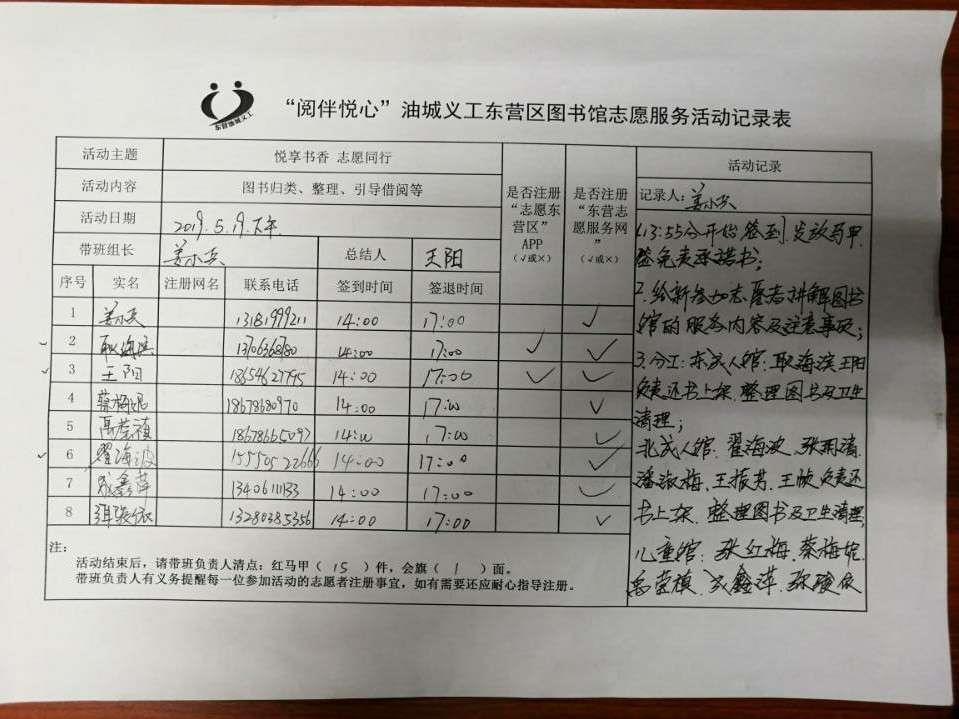 东营油城义工
“阅伴悦心”油城义工东营区图书馆志愿服务活动记录表
活动主题 悦享书香 志愿同行 是否注册“志愿东营区”APP（√或×） 是否注册“东营志愿服务网”（√或×） 活动记录
活动内容 图书归类、整理、引导借阅等
记录人：姜小英
活动日期 2019.5.19.下午
带班组长 姜小英 总结人 王阳
序号 实名 注册网名 联系电话 签到时间 签退时间
1 姜小英 13181999211 14:00 17:00 √
2 耿海滨 13706368780 14:00 17:00 √ √
3 王阳 18654627795 14:00 17:00 √ √
4 蔡梅妮 18678680970 14:00 17:00 √
5 高荣禎 18678665097 14:00 17:00 √
6 翟海波 15550522666 14:00 17:00 √
7 成鑫萍 13406111133 14:00 17:00 √
8 13280385356 14:00 17:00 √
1.13:55分开始签到.发放马甲
签免责承诺书；
2.给新参加志愿者讲解图书
馆的服务内容及注意事项；
3.分工：东成人馆：耿海滨 王阳
负责还书上架.整理图书及卫生
清理；
北成人馆：翟海波、张雨清.
潘淑梅、王振芳、王帧负责还
书上架.整理图书及卫生清理；
儿童馆：张红梅、蔡梅妮
成鑫萍、
注：
活动结束后，请带班负责人清点：红马甲（ 15 ）件，会旗（ 1 ）面。
带班负责人有义务提醒每一位参加活动的志愿者注册事宜，如有需要还应耐心指导注册。